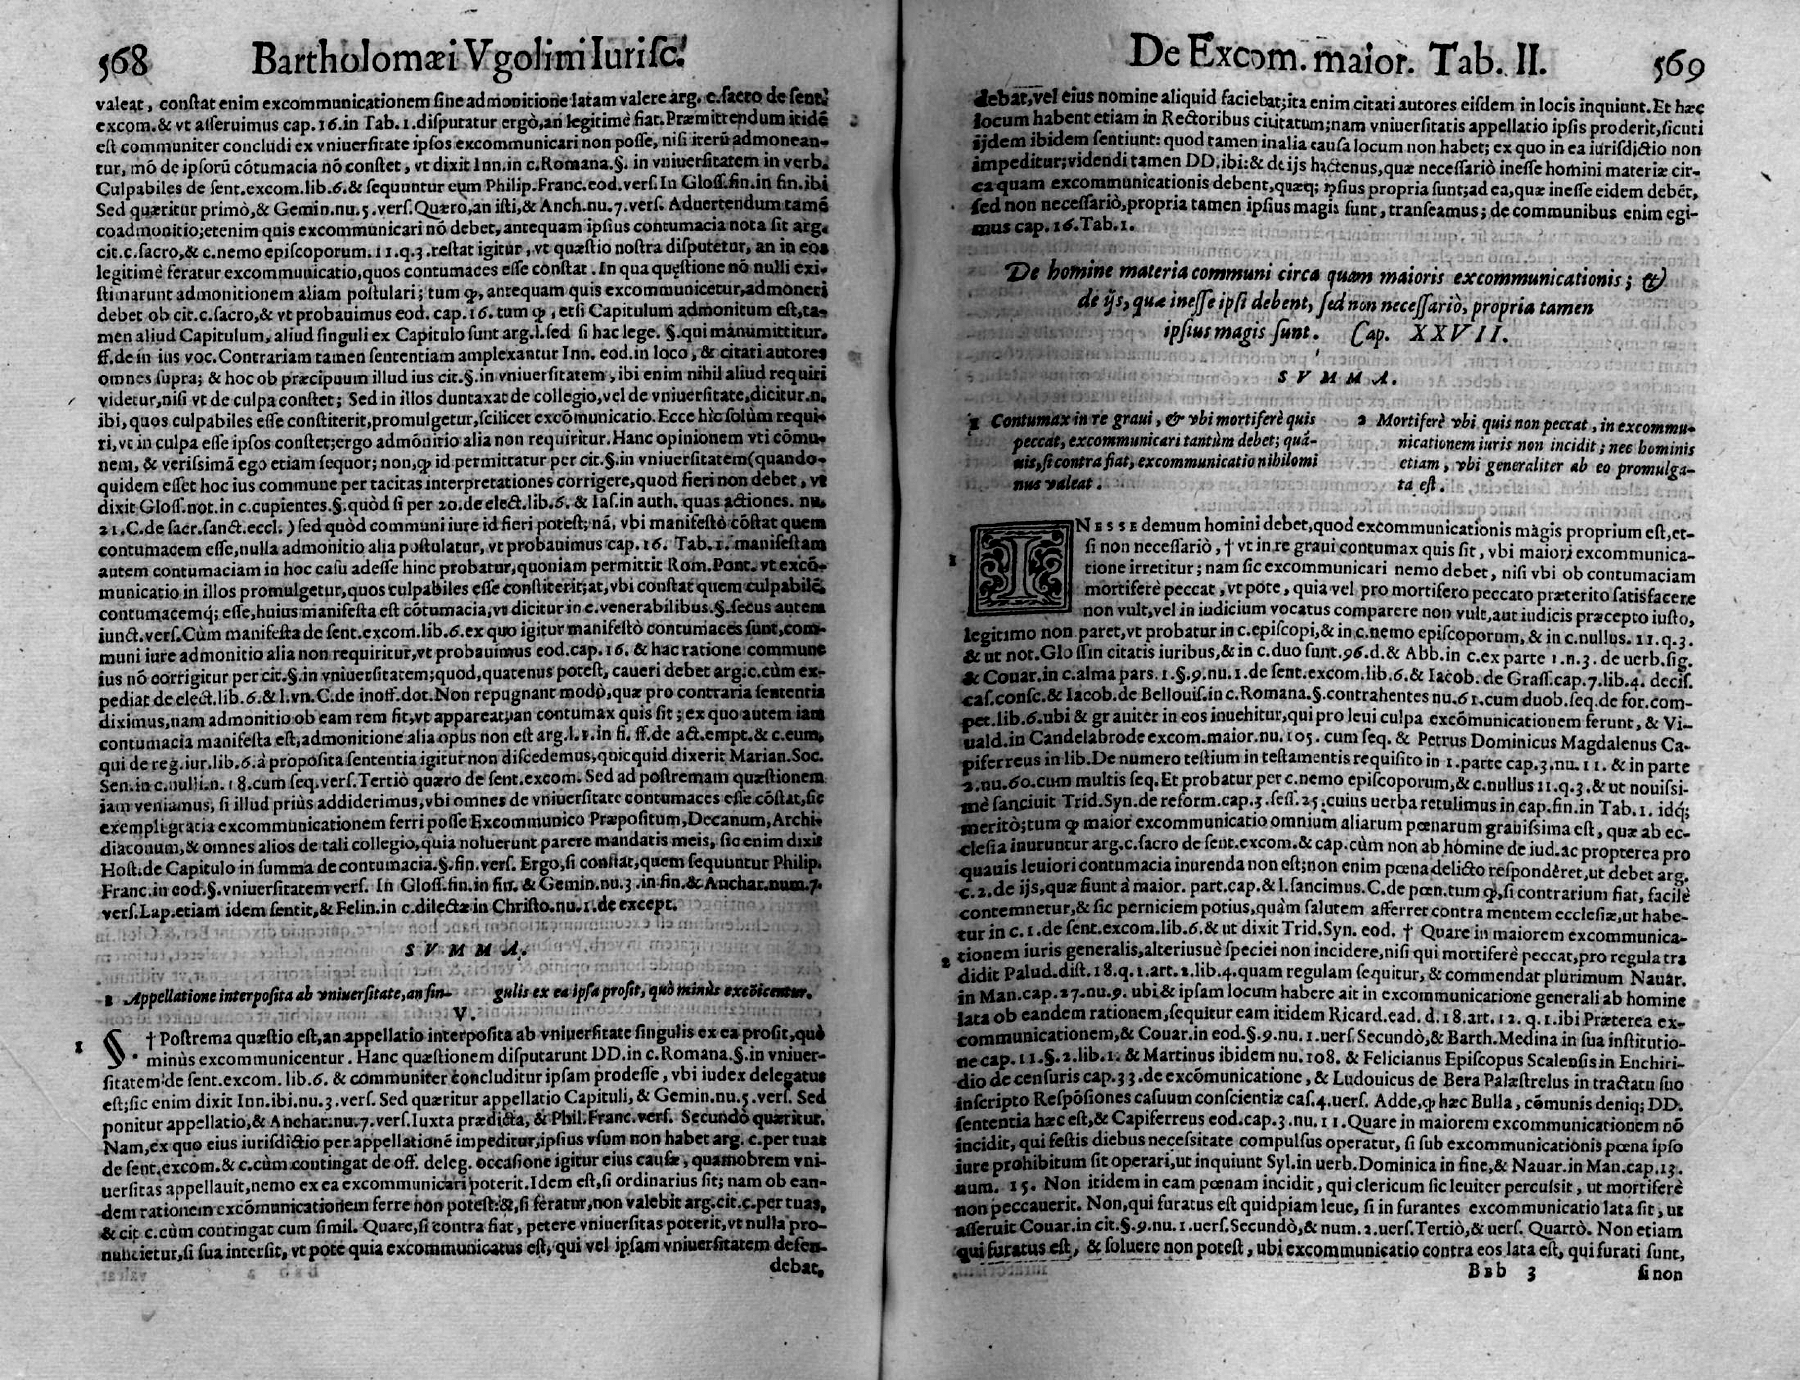 568 Bartholomæi Vgolini Iurisc.
valeat, constat enim excommunicationem sine admonitione latam valere arg. c.sacro de sent.
excom.& vt asseruimus cap.16.in Tab.1.disputatur ergò,an legitimè fiat. Præmittendum itidē
est communiter concludi ex vniuersitate ipsos excommunicari non posse, nisi iterū admonean-
tur, mō de ipsorū cōtumacia nō constet, vt dixit Inn.in c.Romana.§. in vniuersitatem in verb.
Culpabiles de sent.excom.lib.6.& sequuntur eum Philip.Franc.eod.vers.In Gloss.fin.in fin.ibi
Sed quæritur primò,& Gemin.nu.5.vers.Quæro,an isti,& Anch.nu.7.vers. Aduertendum tamē
coadmonitio;etenim quis excommunicari nō debet, antequam ipsius contumacia nota sit arg.
cit.c.sacro,& c.nemo episcoporum.11.q.3.restat igitur, vt quæstio nostra disputetur, an in eos
legitimè feratur excommunicatio,quos contumaces esse constat. In qua quęstione nō nulli exi-
stimarunt admonitionem aliam postulari; tum ꝙ, antequam quis excommunicetur,admoneri
debet ob cit.c.sacro,& vt probauimus eod. cap.16. tum ꝙ, etsi Capitulum admonitum est,ta-
men aliud Capitulum, aliud singuli ex Capitulo sunt arg.l.sed si hac lege. §.qui manumittitur.
ff.de in ius voc.Contrariam tamen sententiam amplexantur Inn. eod.in loco, & citati autores
omnes supra; & hoc ob præcipuum illud ius cit.§.in vniuersitatem, ibi enim nihil aliud requiri
videtur,nisi vt de culpa constet; Sed in illos duntaxat de collegio,vel de vniuersitate,dicitur.n.
ibi, quos culpabiles esse constiterit,promulgetur,scilicet excōmunicatio.Ecce hìc solùm requi-
ri,vt in culpa esse ipsos constet;ergo admōnitio alia non requiritur.Hanc opinionem vti cōmu-
nem, & verissimā ego etiam sequor; non,ꝙ id permittatur per cit.§.in vniuersitatem(quando-
quidem esset hoc ius commune per tacitas interpretationes corrigere,quod fieri non debet, vt
dixit Gloss.not.in c.cupientes.§.quòd si per 20.de elect.lib.6. & Ias.in auth. quas actiones. nu.
21.C.de sacr.sanct.eccl.) sed quòd communi iure id fieri potest; nā, vbi manifestò cōstat quem
contumacem esse,nulla admonitio alia postulatur, vt probauimus cap.16. Tab.1. manifestam
autem contumaciam in hoc casu adesse hinc probatur,quoniam permittit Rom.Pont. vt excō-
municatio in illos promulgetur,quos culpabiles esse constiterit;at,vbi constat quem culpabilē,
contumacemq; esse,huius manifesta est cōtumacia,vt dicitur in c.venerabilibus.§.secus autem
iunct.vers.Cùm manifesta de sent.excom.lib.6.ex quo igitur manifestò contumaces sunt,com-
muni iure admonitio alia non requiritur,vt probauimus eod.cap.16. & hac ratione commune
ius nō corrigitur per cit.§.in vniuersitatem;quod,quatenus potest, caueri debet arg.c.cùm ex-
pediat de elect.lib.6.& l.vn.C.de inoff.dot.Non repugnant modò,quæ pro contraria sententia
diximus,nam admonitio ob eam rem fit,vt appareat,an contumax quis sit; ex quo autem iam
contumacia manifesta est,admonitione alia opus non est arg.l.1.in fi. ff.de act.empt.& c.eum,
qui de reg.iur.lib.6.à proposita sententia igitur non discedemus,quicquid dixerit Marian.Soc.
Sen.in c.nulli.n.18.cum seq.vers.Tertiò quæro de sent.excom. Sed ad postremam quæstionem
iam veniamus, si illud priùs addiderimus,vbi omnes de vniuersitate contumaces esse cōstat,sic
exempli gratia excommunicationem ferri posse Excommunico Præpositum,Decanum,Archi-
diaconum,& omnes alios de tali collegio,quia noluerunt parere mandatis meis, sic enim dixit
Host.de Capitulo in summa de contumacia.§.fin.vers. Ergo,si constat,quem sequuntur Philip.
Franc.in eod.§.vniuersitatem vers. In Gloss.fin.in fin. & Gemin.nu.3.in fin.& Anchar.num.7.
vers.Lap.etiam idem sentit,& Felin.in c.dilectæ in Christo.nu.1.de except.
S V M M A.
1 Appellatione interposita ab vniuersitate, an sin- gulis ex ea ipsa prosit, quò minùs excōicentur.
V.
1 S. † Postrema quæstio est,an appellatio interposita ab vniuersitate singulis ex ea prosit,quò
minùs excommunicentur. Hanc quæstionem disputarunt DD.in c.Romana.§.in vniuer-
sitatem de sent.excom. lib.6. & communiter concluditur ipsam prodesse, vbi iudex delegatus
est;sic enim dixit Inn.ibi.nu.3.vers. Sed quæritur appellatio Capituli,& Gemin.nu.5.vers. Sed
ponitur appellatio,& Anchar.nu.7.vers.Iuxta prædicta, & Phil.Franc.vers. Secundò quæritur.
Nam,ex quo eius iurisdictio per appellationē impeditur,ipsius vsum non habet arg. c.per tuas
de sent.excom.& c.cùm contingat de off. deleg. occasione igitur eius causæ, quamobrem vni-
uersitas appellauit,nemo ex ea excommunicari poterit.Idem est,si ordinarius sit; nam ob ean-
dem rationem excōmunicationem ferre non potest:&,si feratur,non valebit arg.cit.c.per tuas,
& cit c.cùm contingat cum simil. Quare,si contra fiat, petere vniuersitas poterit,vt nulla pro-
nuncietur,si sua intersit, vt pote quia excommunicatus est, qui vel ipsam vniuersitatem defen-
debat,
De Excom. maior. Tab. II. 569
debat,vel eius nomine aliquid faciebat;ita enim citati autores eisdem in locis inquiunt.Et hæc
locum habent etiam in Rectoribus ciuitatum;nam vniuersitatis appellatio ipsis proderit,sicuti
ijdem ibidem sentiunt: quod tamen in alia causa locum non habet; ex quo in ea iurisdictio non
impeditur;videndi tamen DD.ibi:& de ijs hactenus,quæ necessariò inesse homini materiæ cir-
ca quam excommunicationis debent,quæq; ipsius propria sunt;ad ea,quæ inesse eidem debēt,
sed non necessariò,propria tamen ipsius magis sunt, transeamus; de communibus enim egi-
mus cap.16.Tab.1.
De homine materia communi circa quam maioris excommunicationis; &
de ijs, quæ inesse ipsi debent, sed non necessariò, propria tamen
ipsius magis sunt. Cap. XXVII.
S V M M A.
1 Contumax in re graui, & vbi mortiferè quis
peccat, excommunicari tantùm debet; quā-
uis, si contra fiat, excommunicatio nihilomi
nus valeat.
2 Mortiferè vbi quis non peccat, in excommu-
nicationem iuris non incidit; nec hominis
etiam, vbi generaliter ab eo promulga-
ta est.
1 INESSE demum homini debet,quod excommunicationis magis proprium est,et-
si non necessariò, † vt in re graui contumax quis sit, vbi maiori excommunica-
tione irretitur; nam sic excommunicari nemo debet, nisi vbi ob contumaciam
mortiferè peccat, vt pote, quia vel pro mortifero peccato præterito satisfacere
non vult,vel in iudicium vocatus comparere non vult,aut iudicis præcepto iusto,
legitimo non paret,vt probatur in c.episcopi,& in c.nemo episcoporum,& in c.nullus.11.q.3.
& ut not.Glossin citatis iuribus,& in c.duo sunt.96.d.& Abb.in c.ex parte 1.n.3. de uerb.sig.
& Couar.in c.alma pars.1.§.9.nu.1.de sent.excom.lib.6.& Iacob. de Graff.cap.7.lib.4. decis.
cas.consc.& Iacob.de Bellouis.in c.Romana.§.contrahentes nu.61.cum duob.seq.de for.com-
pet.lib.6.ubi & grauiter in eos inuehitur,qui pro leui culpa excōmunicationem ferunt, & Vi-
uald.in Candelabro de excom.maior.nu.105. cum seq. & Petrus Dominicus Magdalenus Ca-
piferreus in lib.De numero testium in testamentis requisito in 1.parte cap.3.nu.11. & in parte
2.nu.60.cum multis seq.Et probatur per c.nemo episcoporum,& c.nullus 11.q.3.& ut nouissi-
mè sanciuit Trid.Syn.de reform.cap.3.sess.25.cuius uerba retulimus in cap.fin.in Tab.1. idq;
meritò;tum ꝙ maior excommunicatio omnium aliarum pœnarum grauissima est, quæ ab ec-
clesia inuruntur arg.c.sacro de sent.excom.& cap.cùm non ab homine de iud.ac propterea pro
quauis leuiori contumacia inurenda non est;non enim pœna delicto respondéret,ut debet arg.
c.2.de ijs,quæ fiunt à maior. part.cap.& l.sancimus.C.de pœn.tum ꝙ,si contrarium fiat, facilè
contemnetur,& sic perniciem potius,quàm salutem afferret contra mentem ecclesiæ,ut habe-
tur in c.1.de sent.excom.lib.6.& ut dixit Trid.Syn. eod. † Quare in maiorem excommunica-
2 tionem iuris generalis,alteriusuè speciei non incidere,nisi qui mortiferè peccat,pro regula tra
didit Palud.dist.18.q.1.art.2.lib.4.quam regulam sequitur, & commendat plurimum Nauar.
in Man.cap.27.nu.9. ubi & ipsam locum habere ait in excommunicatione generali ab homine
lata ob eandem rationem,sequitur eam itidem Ricard.ead.d.18.art.12.q.1.ibi Præterea ex-
communicationem,& Couar.in eod.§.9.nu.1.uers.Secundò,& Barth.Medina in sua institutio-
ne cap.11.§.2.lib.1.& Martinus ibidem nu.108. & Felicianus Episcopus Scalensis in Enchiri-
dio de censuris cap.33.de excōmunicatione, & Ludouicus de Bera Palæstrelus in tractatu suo
inscripto Respōsiones casuum conscientiæ cas.4.uers. Adde,ꝙ hæc Bulla, cōmunis deniq; DD.
sententia hæc est,& Capiferreus eod.cap.3.nu.11.Quare in maiorem excommunicationem nō
incidit, qui festis diebus necessitate compulsus operatur, si sub excommunicationis pœna ipso
iure prohibitum sit operari,ut inquiunt Syl.in uerb.Dominica in fine,& Nauar.in Man.cap.13.
num. 15. Non itidem in eam pœnam incidit, qui clericum sic leuiter percussit, ut mortiferè
non peccauerit. Non,qui furatus est quidpiam leue, si in furantes excommunicatio lata sit, ut
asseruit Couar.in cit.§.9.nu.1.uers.Secundò,& num.2.uers.Tertiò,& uers. Quartò. Non etiam
qui furatus est, & soluere non potest, ubi excommunicatio contra eos lata est, qui furati sunt,
Bbb 3 si non